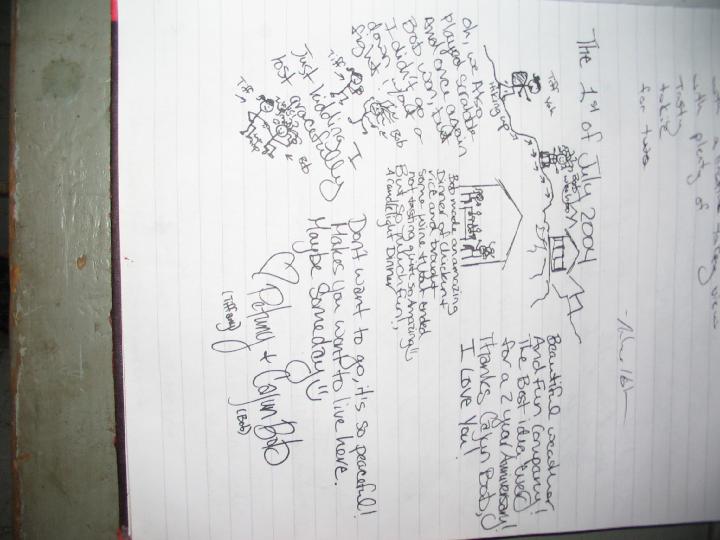 with plenty of
Tasty
tokiz
for two
The 1st of July 2004
Tiff
Bob
Hiking up
Beautiful weather
And Fun Company!
The Best idea Ever
for a 2 year Anniversary!
Thanks Cajun Bob,
I Love You!
Bob made an amazing
Dinner of chicken
rice and brought
some wine that ended
not tasting quite so Amazing!!
But So Much Fun!,
A candlelight Dinner
oh, we Also
played scrabble
And once again
Bob won, but
I didn't go
down w/out a
fight!
Tiff
Bob
Just kidding, I
lost gracefully
Tiff
Bob
Dont want to go, it's so peaceful!
Makes you want to live here.
Maybe Someday!
Petuny + Cajun Bob
(Tiffany)
(Bob)